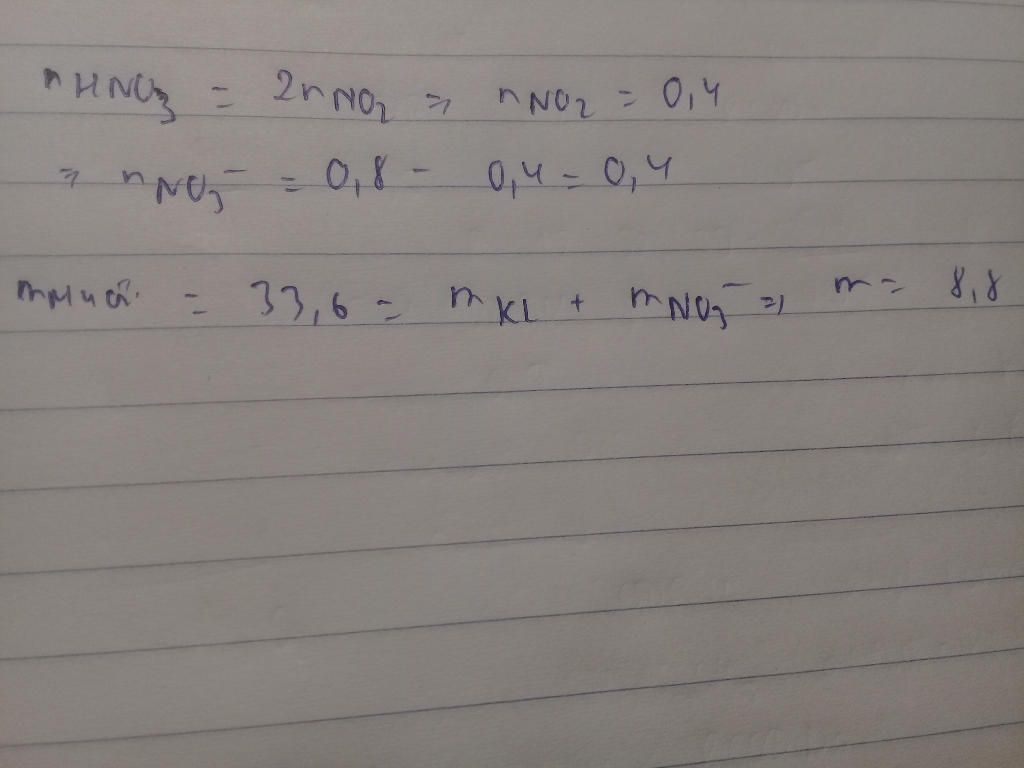 nHNO3 = 2nNO2 ⇒ nNO2 = 0,4
⇒ nNO3⁻ = 0,8 - 0,4 = 0,4
mMuối = 33,6 = mKL + mNO3⁻ ⇒ m = 8,8